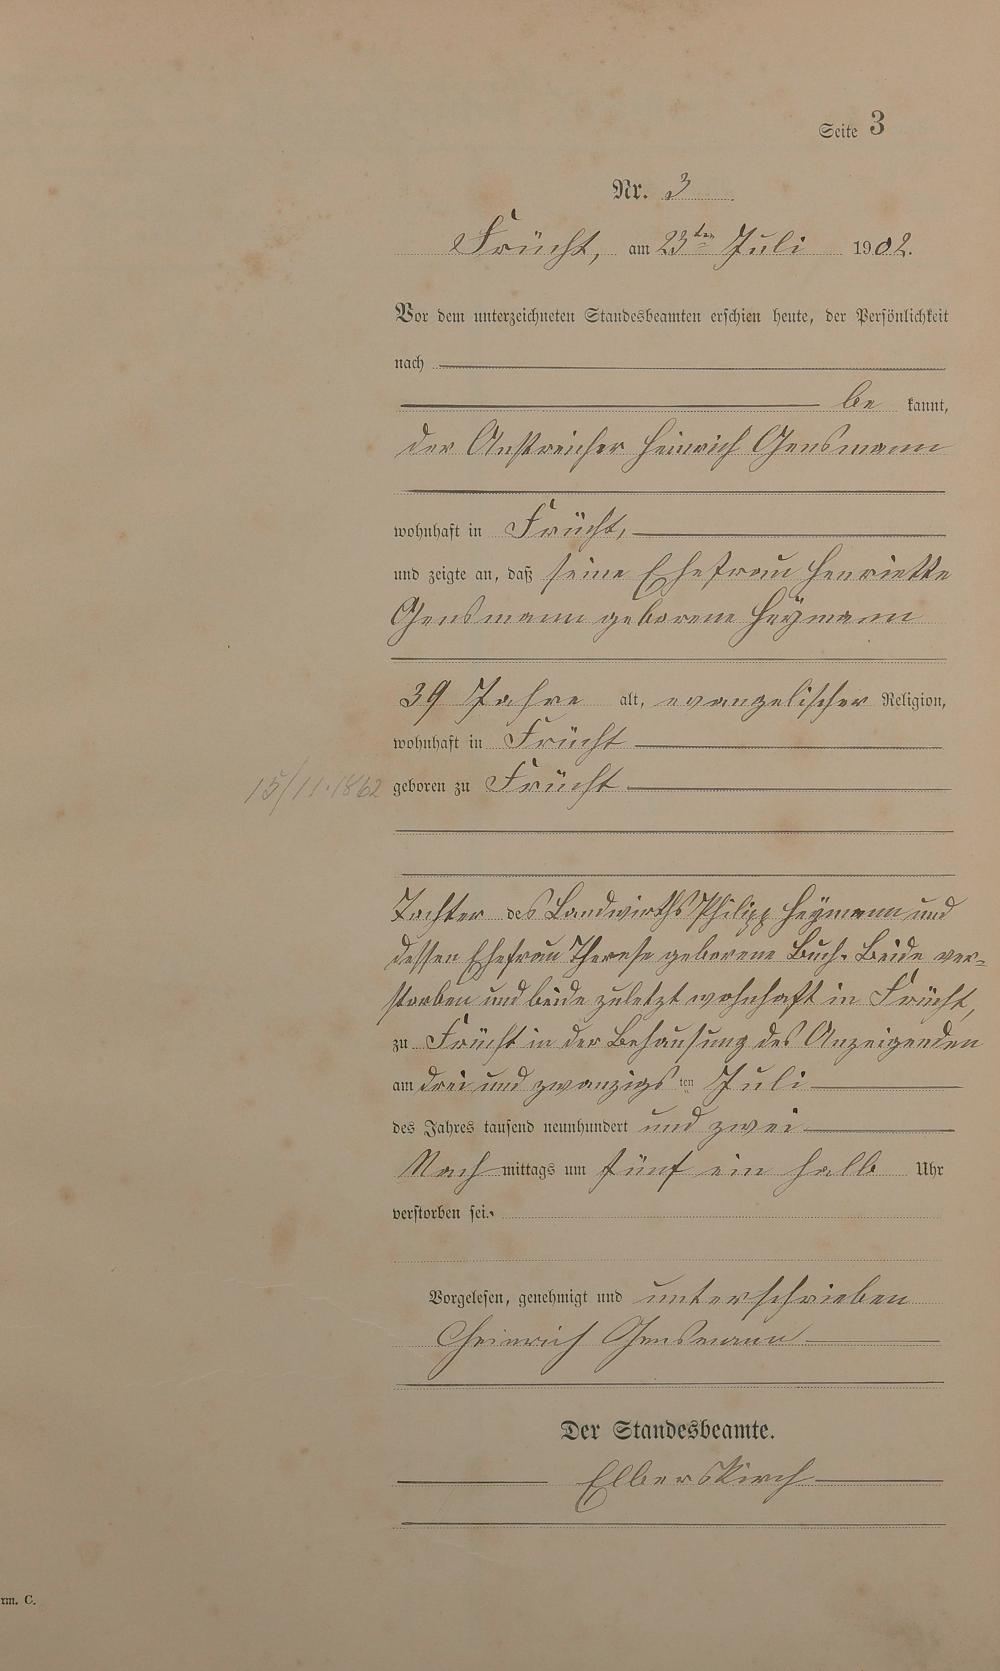 Seite 3
Nr. 3
Frücht, am 23ten Juli 1902.
Vor dem unterzeichneten Standesbeamten erschien heute, der Persönlichkeit
nach
be kannt,
der Anstreicher Heinrich Gensmann
wohnhaft in Frücht,
und zeigte an, daß seine Ehefrau Henriette
Gensmann geborene Heÿmann
39 Jahre alt, evangelischer Religion,
wohnhaft in Frücht
15/11.1862 geboren zu Frücht
Tochter des Landwirths Philipp Heÿmann und
dessen Ehefrau Therese geborene Buch. Beide ver-
storben und beide zuletzt wohnhaft in Frücht,
zu Frücht in der Behausung des Anzeigenden
am drei und zwanzigs ten Juli
des Jahres tausend neunhundert und zwei
Nach mittags um fünf ein halb Uhr
verstorben sei.
Vorgelesen, genehmigt und unterschrieben
Heinrich Gensmann
Der Standesbeamte.
Elberskirch
rm. C.